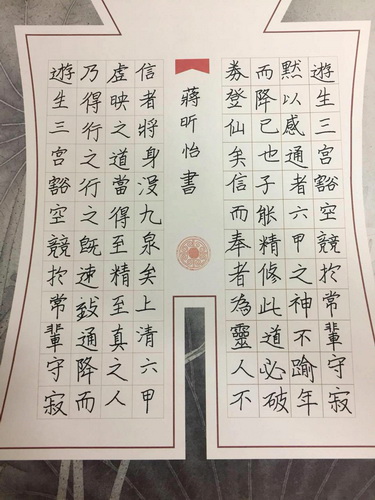 遊生三宮豁空競於常輩守寂
默以感通者六甲之神不踰年
而降已也子能精修此道必破
券登仙矣信而奉者為靈人不
蔣昕怡書
信者將身沒九泉矣上清六甲
虛映之道當得至精至真之人
乃得行之行之既速致通降而
遊生三宮豁空競於常輩守寂